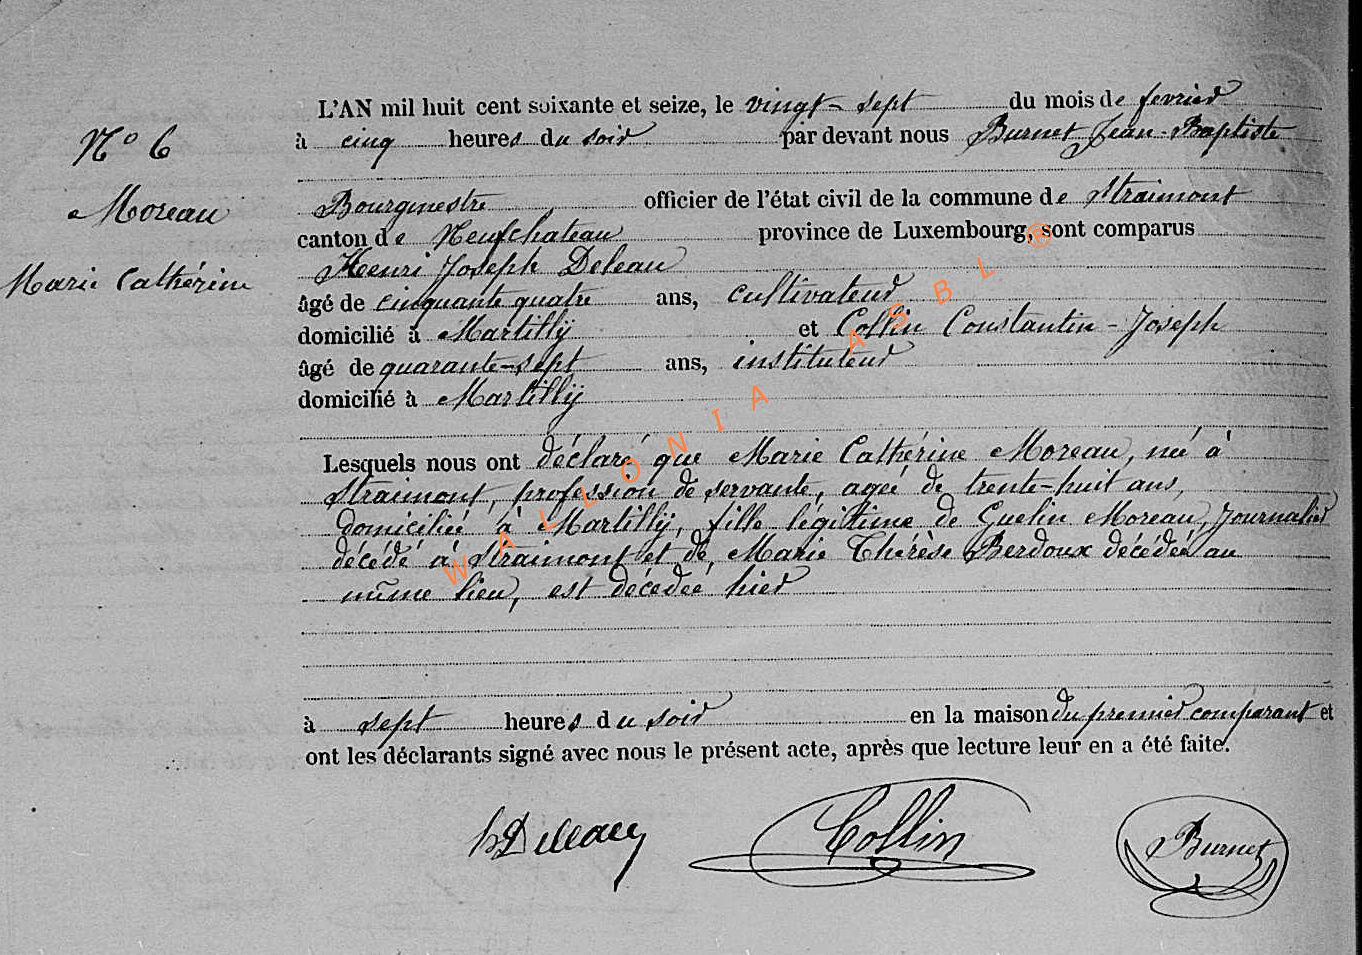 L'AN mil huit cent soixante et seize, le vingt-sept du mois de fevrier
N° 6
à cinq heures du soir par devant nous Burnet Jean-Baptiste
Moreau
Bourgmestre officier de l'état civil de la commune de Straimont
canton de Neufchateau province de Luxembourg, sont comparus
Marie Cathérine
Henri Joseph Deleau
âgé de cinquante quatre ans, cultivateur
domicilié à Martilly et Collin Constantin-Joseph
âgé de quarante-sept ans, instituteur
domicilié à Martilly
Lesquels nous ont déclaré que Marie Cathérine Moreau, née à
Straimont, profession de servante, ageé de trente-huit ans,
domiciliée à Martilly, fille légitime de Guelin Moreau, Journalier
décédé à Straimont et de Marie Thérèse Berdoux décédée au
même lieu, est décedeé hier
à sept heures du soir en la maison du premier comparant et
ont les déclarants signé avec nous le présent acte, après que lecture leur en a été faite.
hDeleau Collin Burnet
WALLONIA ASBL ®